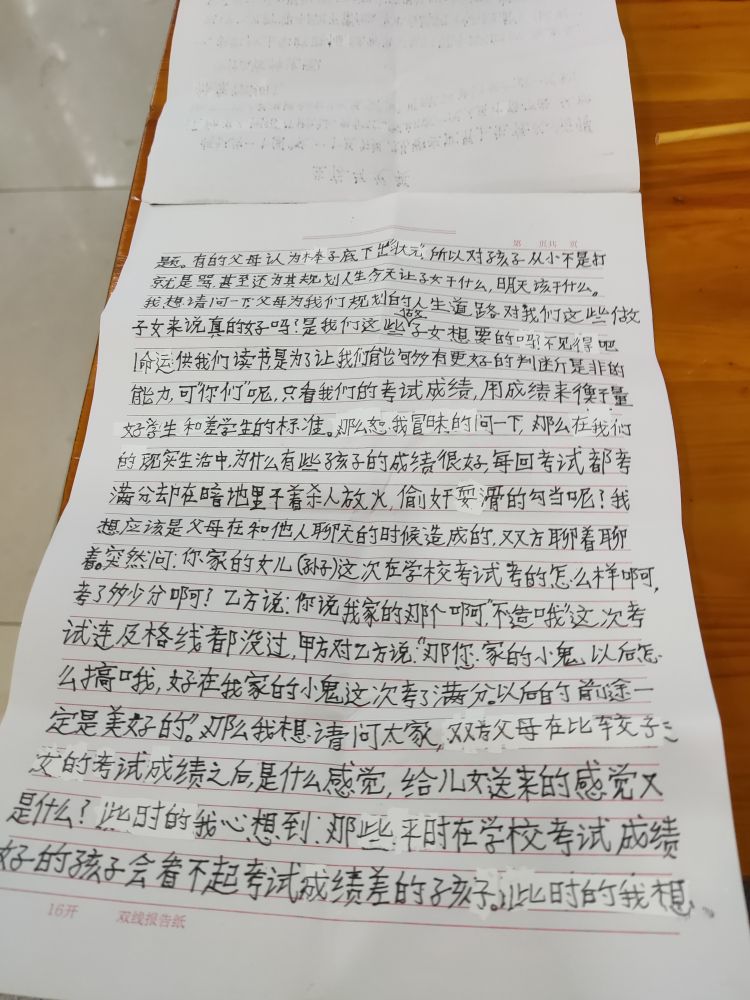 第 页共 页
题。有的父母认为棒子底下出"状元",所以对孩子从小不是打
就是骂,甚至还为其规划人生今天让子女干什么,明天该干什么。
我想请问一下父母为我们规划的人生道路对我们这些做
子女来说真的好吗?是我们这些做子女想要的吗?不见得吧
命运:供我们读书是为了让我们有能够有更好的判断是非的
能力,可"你们"呢,只看我们的考试成绩,用成绩来衡量
好学生和差学生的标准。那么恕我冒昧的问一下,那么在我们
的现实生活中,为什么有些孩子的成绩很好,每回考试都考
满分却在暗地里干着杀人放火,偷奸耍滑的勾当呢?我
想应该是父母在和他人聊天的时候造成的,双方聊着聊
着。突然问:你家的女儿(孙子)这次在学校考试考的怎么样啊,
考了多少分啊?乙方说:你说我家的那个啊,"不造哦"这次考
试连及格线都没过,甲方对乙方说:"那您家的小鬼以后怎
么搞哦,好在我家的小鬼这次考了满分。以后的前途一
定是美好的"。那么我想请问大家,双方父母在比较子
女的考试成绩之后,是什么感觉,给儿女送来的感觉又
是什么?此时的我心想到:那些平时在学校考试成绩
好的孩子会看不起考试成绩差的子孩子。让此时的我想
16开 双线报告纸